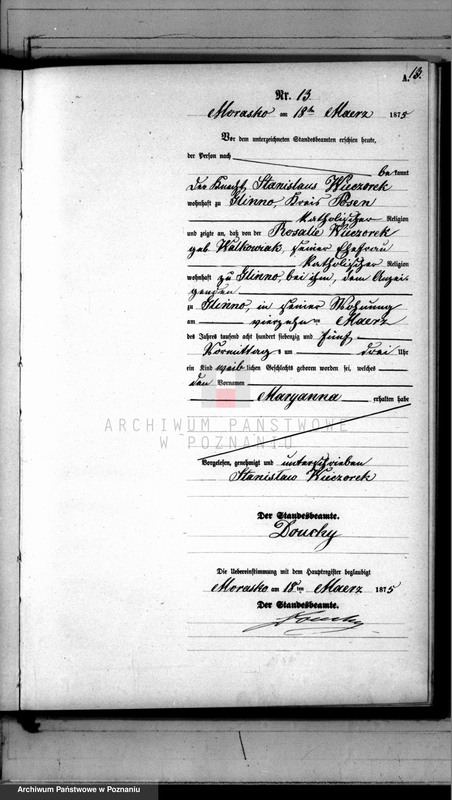 A. 13.
Nr. 13.
Morasko am 18ten Maerz 1875
Vor dem unterzeichneten Standesbeamten erschien heute,
der Person nach bekannt
der Knecht Stanislaus Wieczorek
wohnhaft zu Glinno, Kreis Posen
katholischer Religion
und zeigte an, daß von der Rosalie Wieczorek
geb Walkowiak, seiner Ehefrau
katholischer Religion
wohnhaft zu Glinno, bei ihm, dem Anzei-
genden
zu Glinno, in seiner Wohnung
am vierzehn ten Maerz
des Jahres tausend acht hundert siebenzig und fünf
Vormittag s um drei Uhr
ein Kind weiblichen Geschlechts geboren worden sei, welches
den Vornamen
Maryanna erhalten habe
ARCHIWUM PAŃSTWOWE
W POZNANIU
Vorgelesen, genehmigt und unterschrieben
Stanisław Wieczorek
Der Standesbeamte.
Douchy
Die Uebereinstimmung mit dem Hauptregister beglaubigt
Morasko am 18ten Maerz 1875
Der Standesbeamte.
Douchy
Archiwum Państwowe w Poznaniu